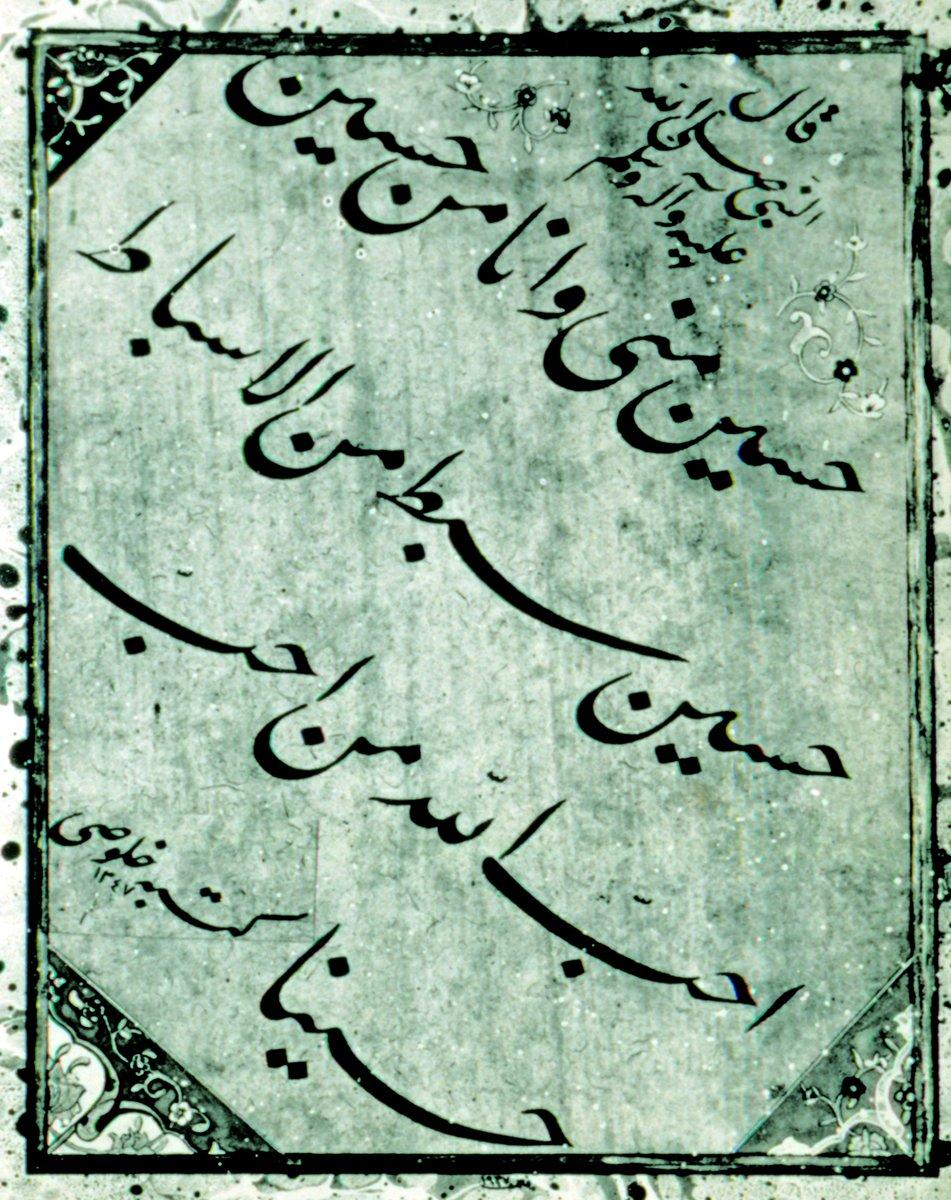 قال
النبی صلی الله
علیه و آله وسلم
حسین منی وانا من حسین
حسین سبط من الاسباط
احب الله من احب
حسینا
کتبه خلوصی
۱۳٤۷